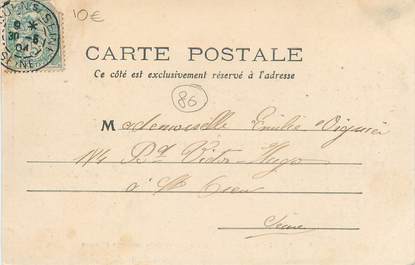 10€
CARTE POSTALE
Ce côté est exclusivement réservé à l'adresse
86
Mademoiselle Emilie
Bd Victor Hugo
à St Ouen
Seine